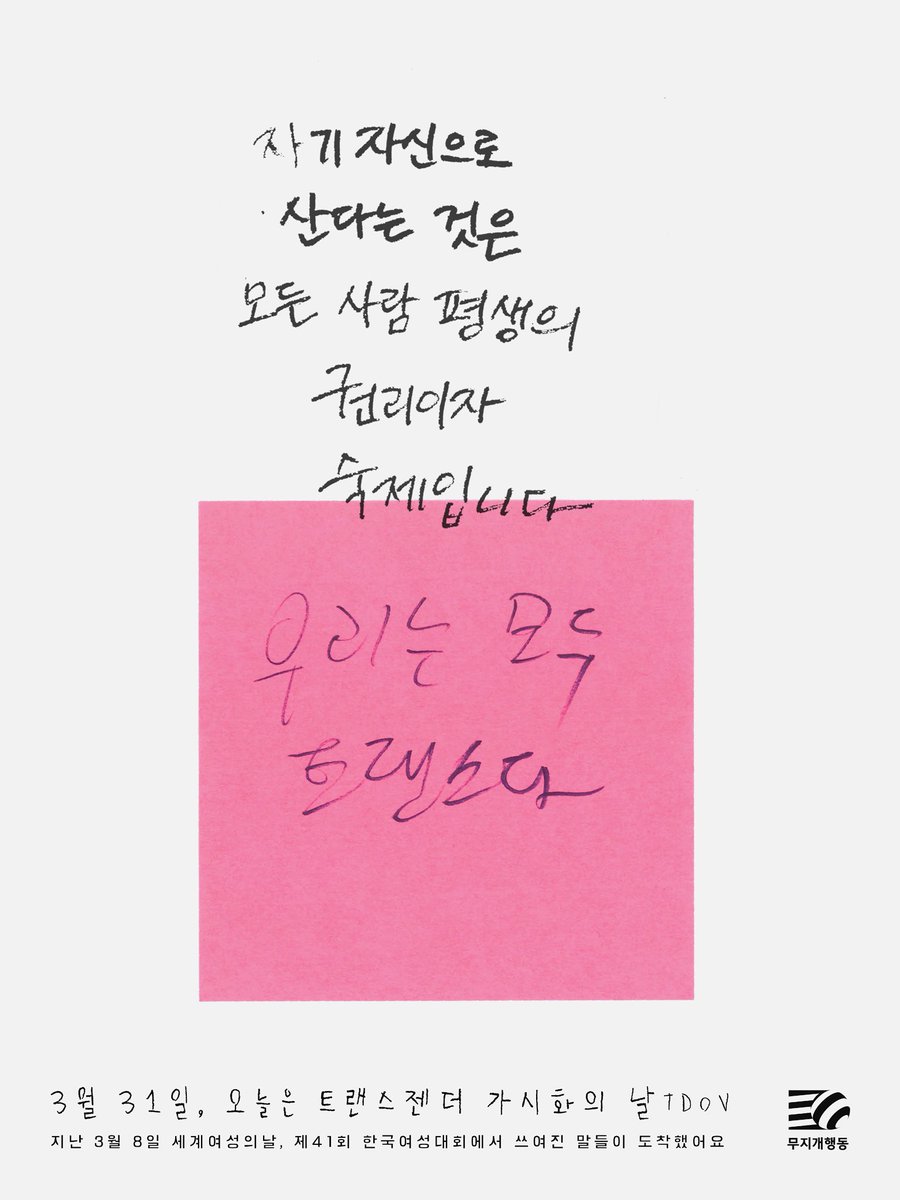 자기 자신으로
산다는 것은
모든 사람 평생의
권리이자
숙제입니다
우리는 모두
트랜스다
3월 31일, 오늘은 트랜스젠더 가시화의 날 TDOV
지난 3월 8일 세계여성의날, 제41회 한국여성대회에서 쓰여진 말들이 도착했어요
무지개행동